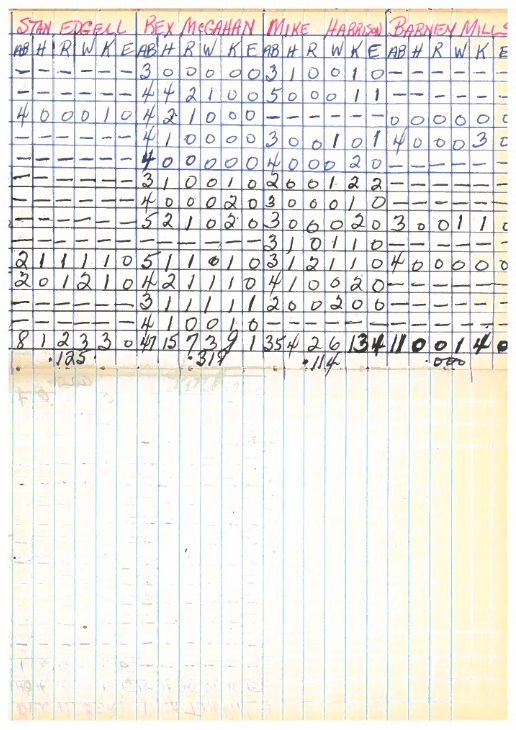 STAN EDGELL REX McGAHAN MIKE HARRISON BARNEY MILLS
AB H R W K E AB H R W K E AB H R W K E AB H R W K E
— — — — — — 3 0 0 0 0 0 3 1 0 0 1 0 — — — — — —
— — — — — — 4 4 2 1 0 0 5 0 0 0 1 1 — — — — — —
4 0 0 0 1 0 4 2 1 0 0 0 — — — — — — 0 0 0 0 0 0
— — — — — — 4 1 0 0 0 0 3 0 0 1 0 1 4 0 0 0 3 0
— — — — — — 4 0 0 0 0 0 4 0 0 0 2 0 — — — — — —
— — — — — — 3 1 0 0 1 0 2 0 0 1 2 2 — — — — — —
— — — — — — 4 0 0 0 2 0 3 0 0 0 1 0 — — — — — —
— — — — — — 5 2 1 0 2 0 3 0 0 0 2 0 3 0 0 1 1 0
— — — — — — — — — — — — 3 1 0 1 1 0 — — — — — —
2 1 1 1 1 0 5 1 1 0 1 0 3 1 2 1 1 0 4 0 0 0 0 0
2 0 1 2 1 0 4 2 1 1 1 0 4 1 0 0 2 0 — — — — — —
— — — — — — 3 1 1 1 1 1 2 0 0 2 0 0 — — — — — —
— — — — — — 4 1 0 0 1 0 — — — — — — — — — — — —
8 1 2 3 3 0 47 15 7 3 9 1 35 4 2 6 13 4 11 0 0 1 4 0
.125 .319 .114 .000